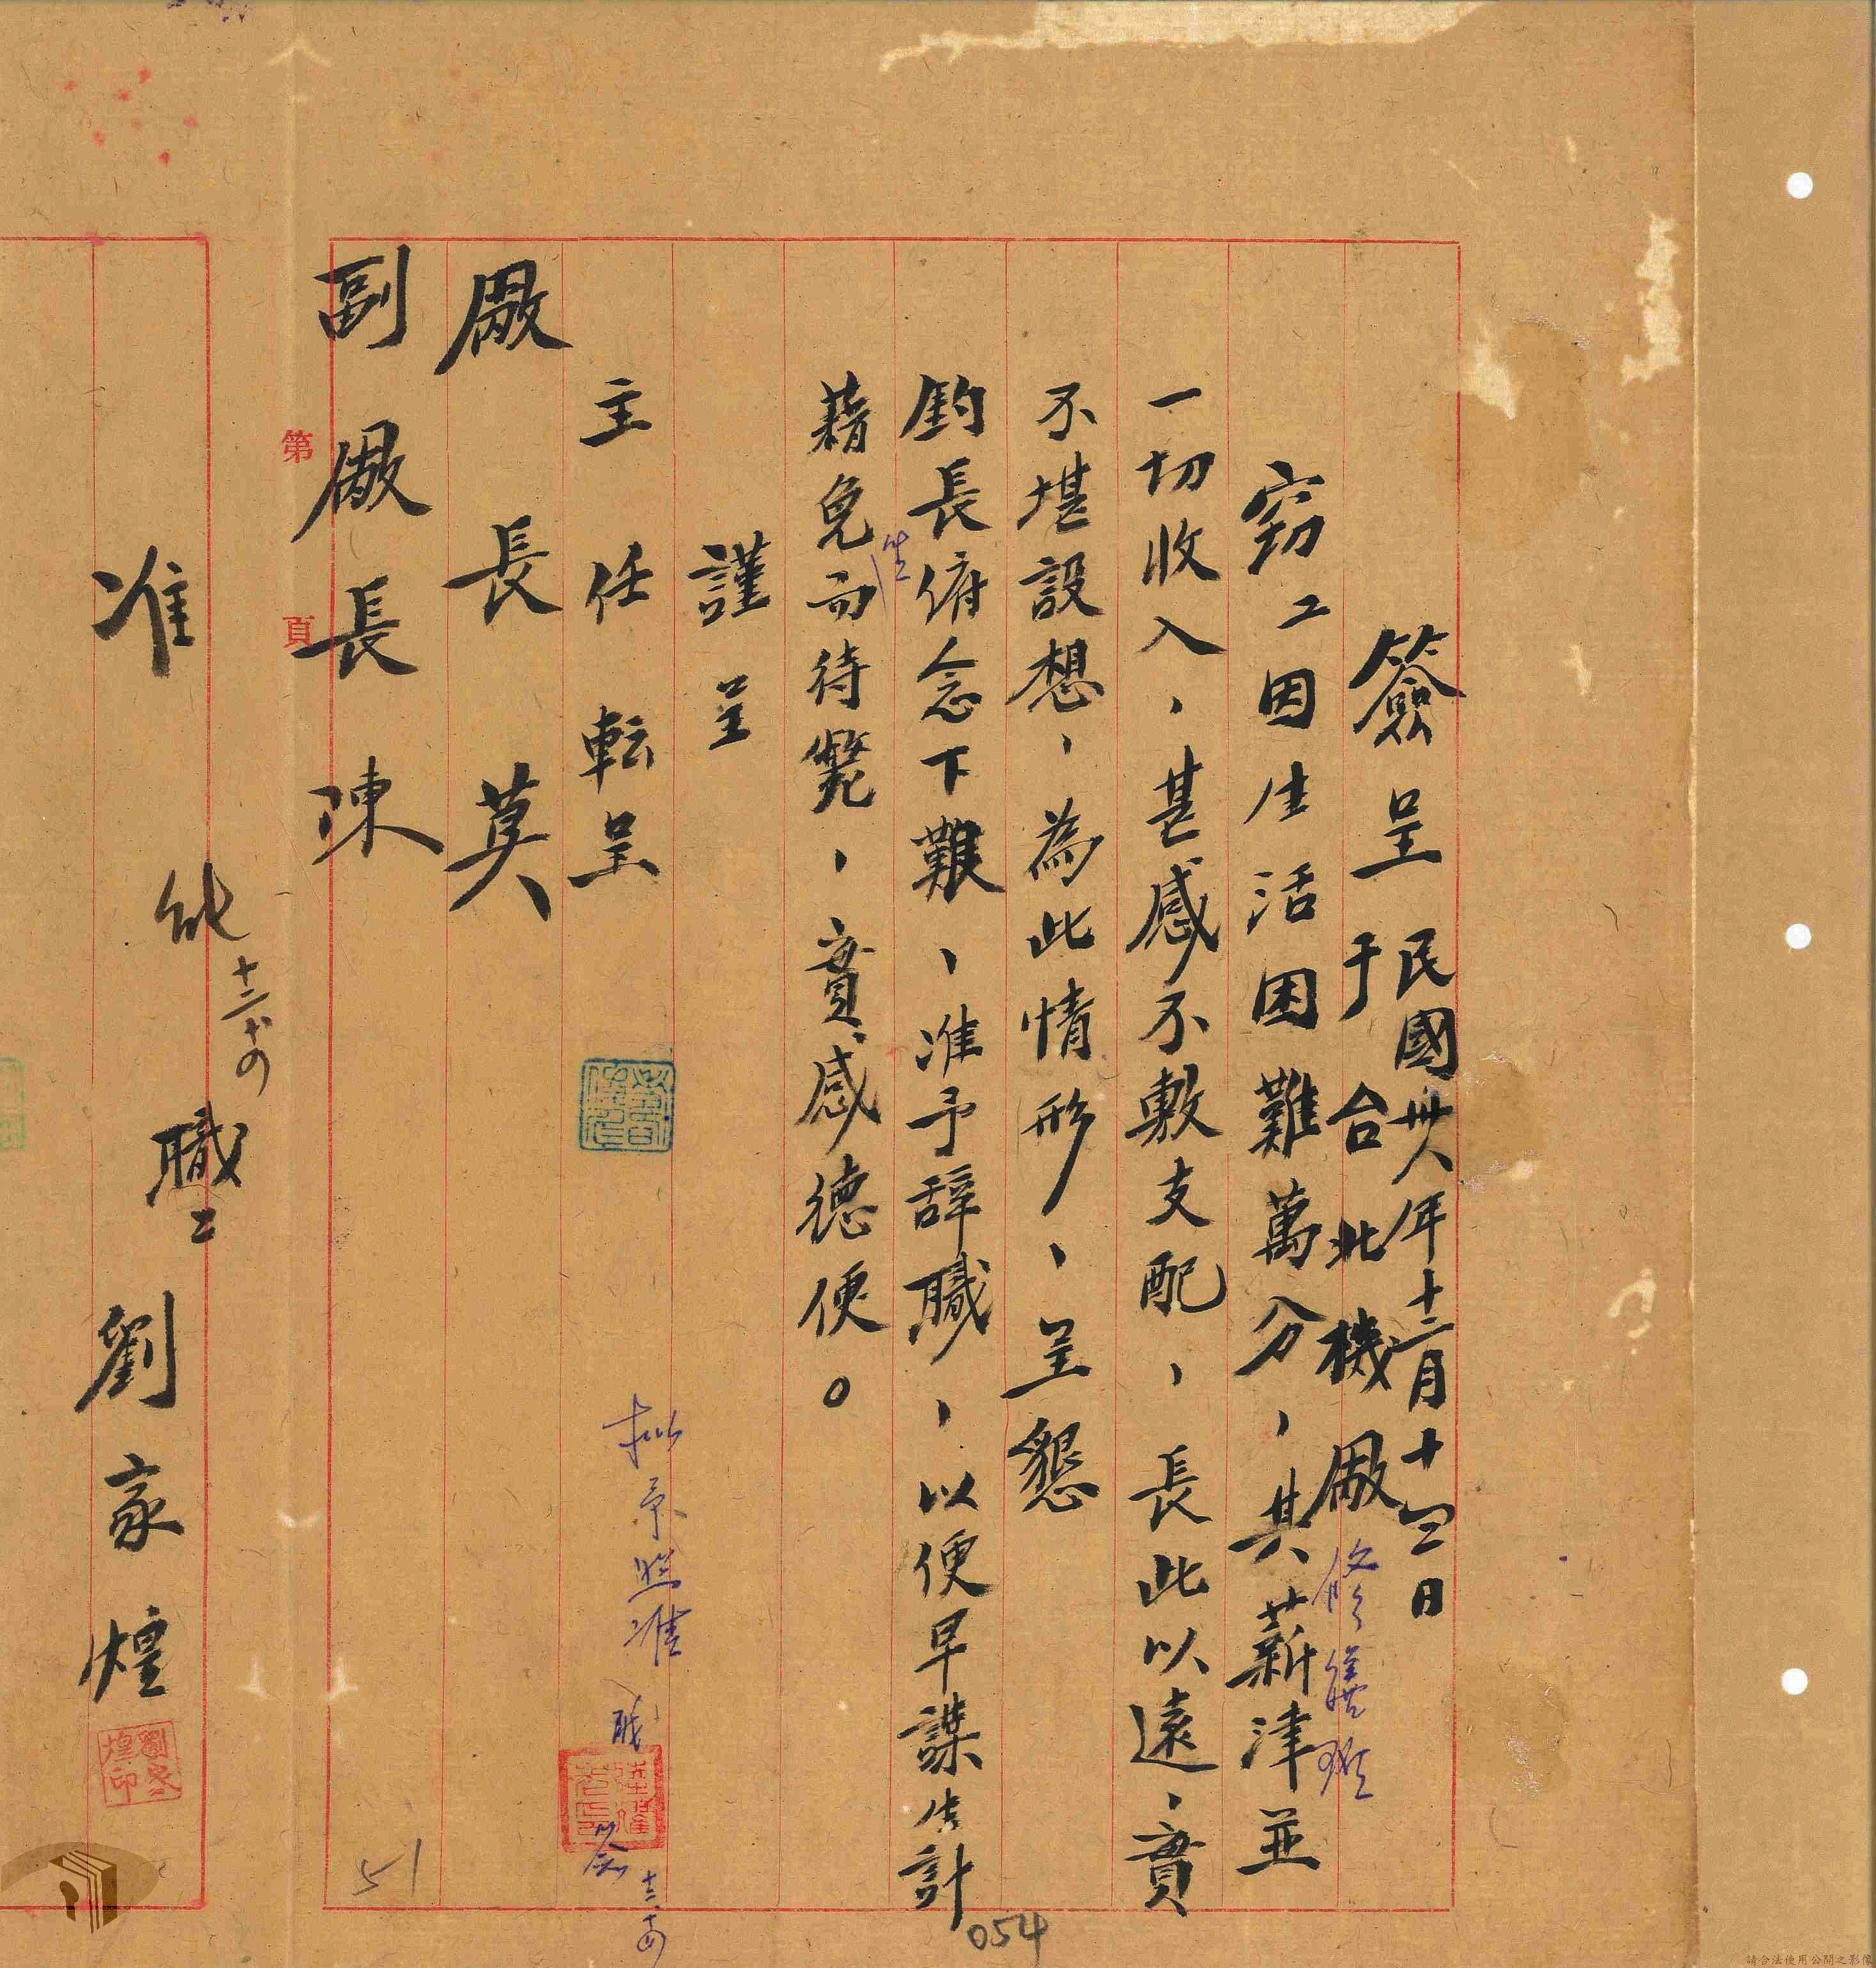 簽呈 民國卅八年十二月十四日
于台北機廠
竊工因生活困難萬分，其薪津並
一切收入，甚感不敷支配，長此以遠，實
不堪設想，為此情形，呈懇
鈞長俯念下難，准予辞職，以便早謀生計
藉免而待斃，實感德便。
坐
謹呈
主任転呈
拟予照准 職
十二、十四
廠長莫
副廠長陳
第 頁
准
十二、十四
職工 劉家煌
劉家煌印
51
054
請合法使用公開之影像